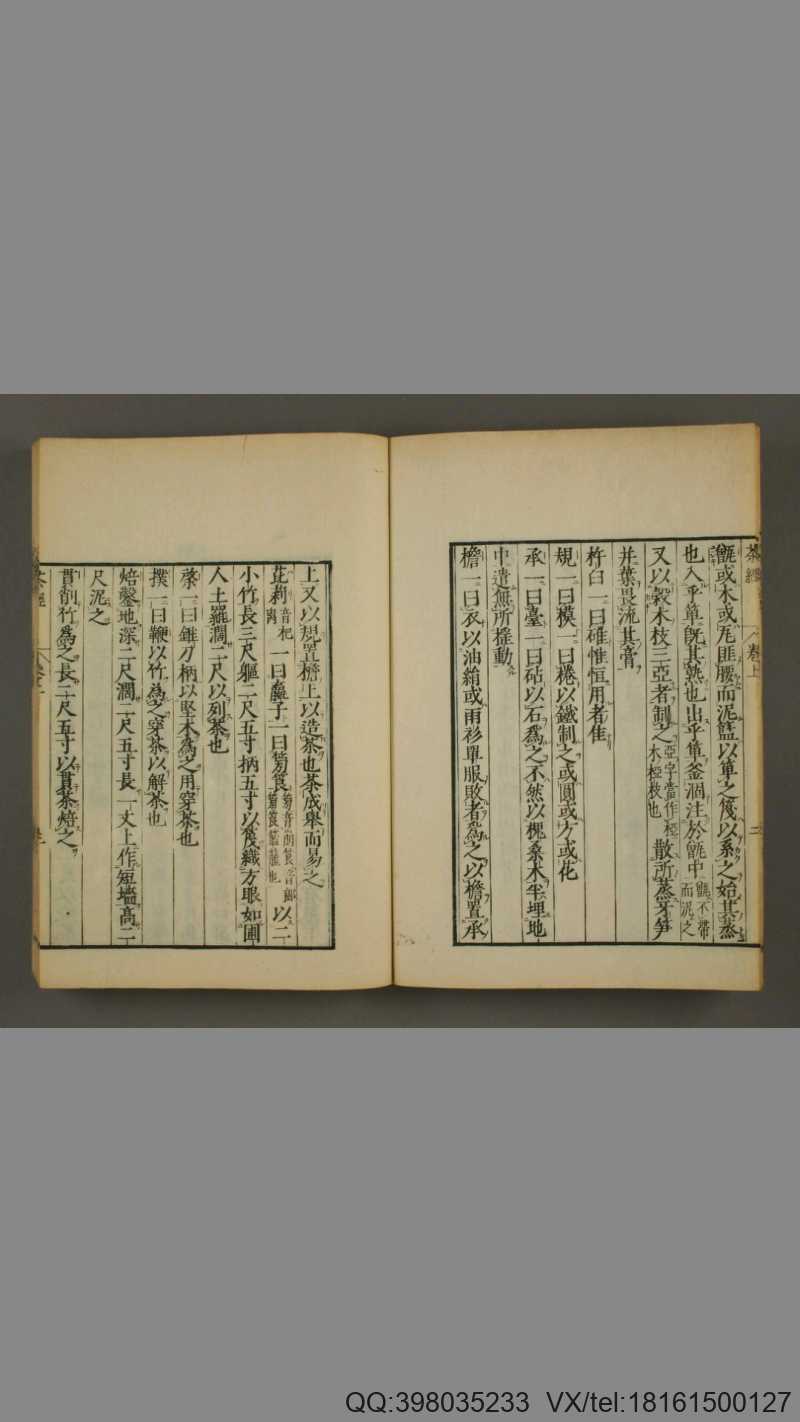 茶經 卷上 二
甑或木或瓦匪腰而泥籃以箄之篾以系之始其蒸
也入乎箄既其熟也出乎箄釜涸注於甑中甑不帶而泥之
又以榖木枝三亞者制之亞字當作椏木椏枝也散所蒸牙笋
并葉畏流其膏
杵臼一曰碓惟恒用者佳
規一曰模一曰棬以鐵制之或圓或方或化
承一曰臺一曰砧以石爲之不然以槐桑木半埋地
中遣無所搖動
檐一曰衣以油絹或雨衫單服敗者爲之以檐置承
上又以規置檐上以造茶也茶成舉而易之
芘莉音杷离一曰羸子一曰筹筤筹音崩筤音郎筹筤籃籠也以二
小竹長三尺軀二尺五寸柄五寸以篾織方眼如圃
人土羅濶二尺以列茶也
棨一曰錐刀柄以堅木爲之用穿茶也
撲一曰鞭以竹爲之穿茶以解茶也
焙鑿地深二尺濶二尺五寸長一丈上作短墻高二
尺泥之
貫削竹爲之長二尺五寸以貫茶焙之
QQ:398035233 VX/tel:18161500127